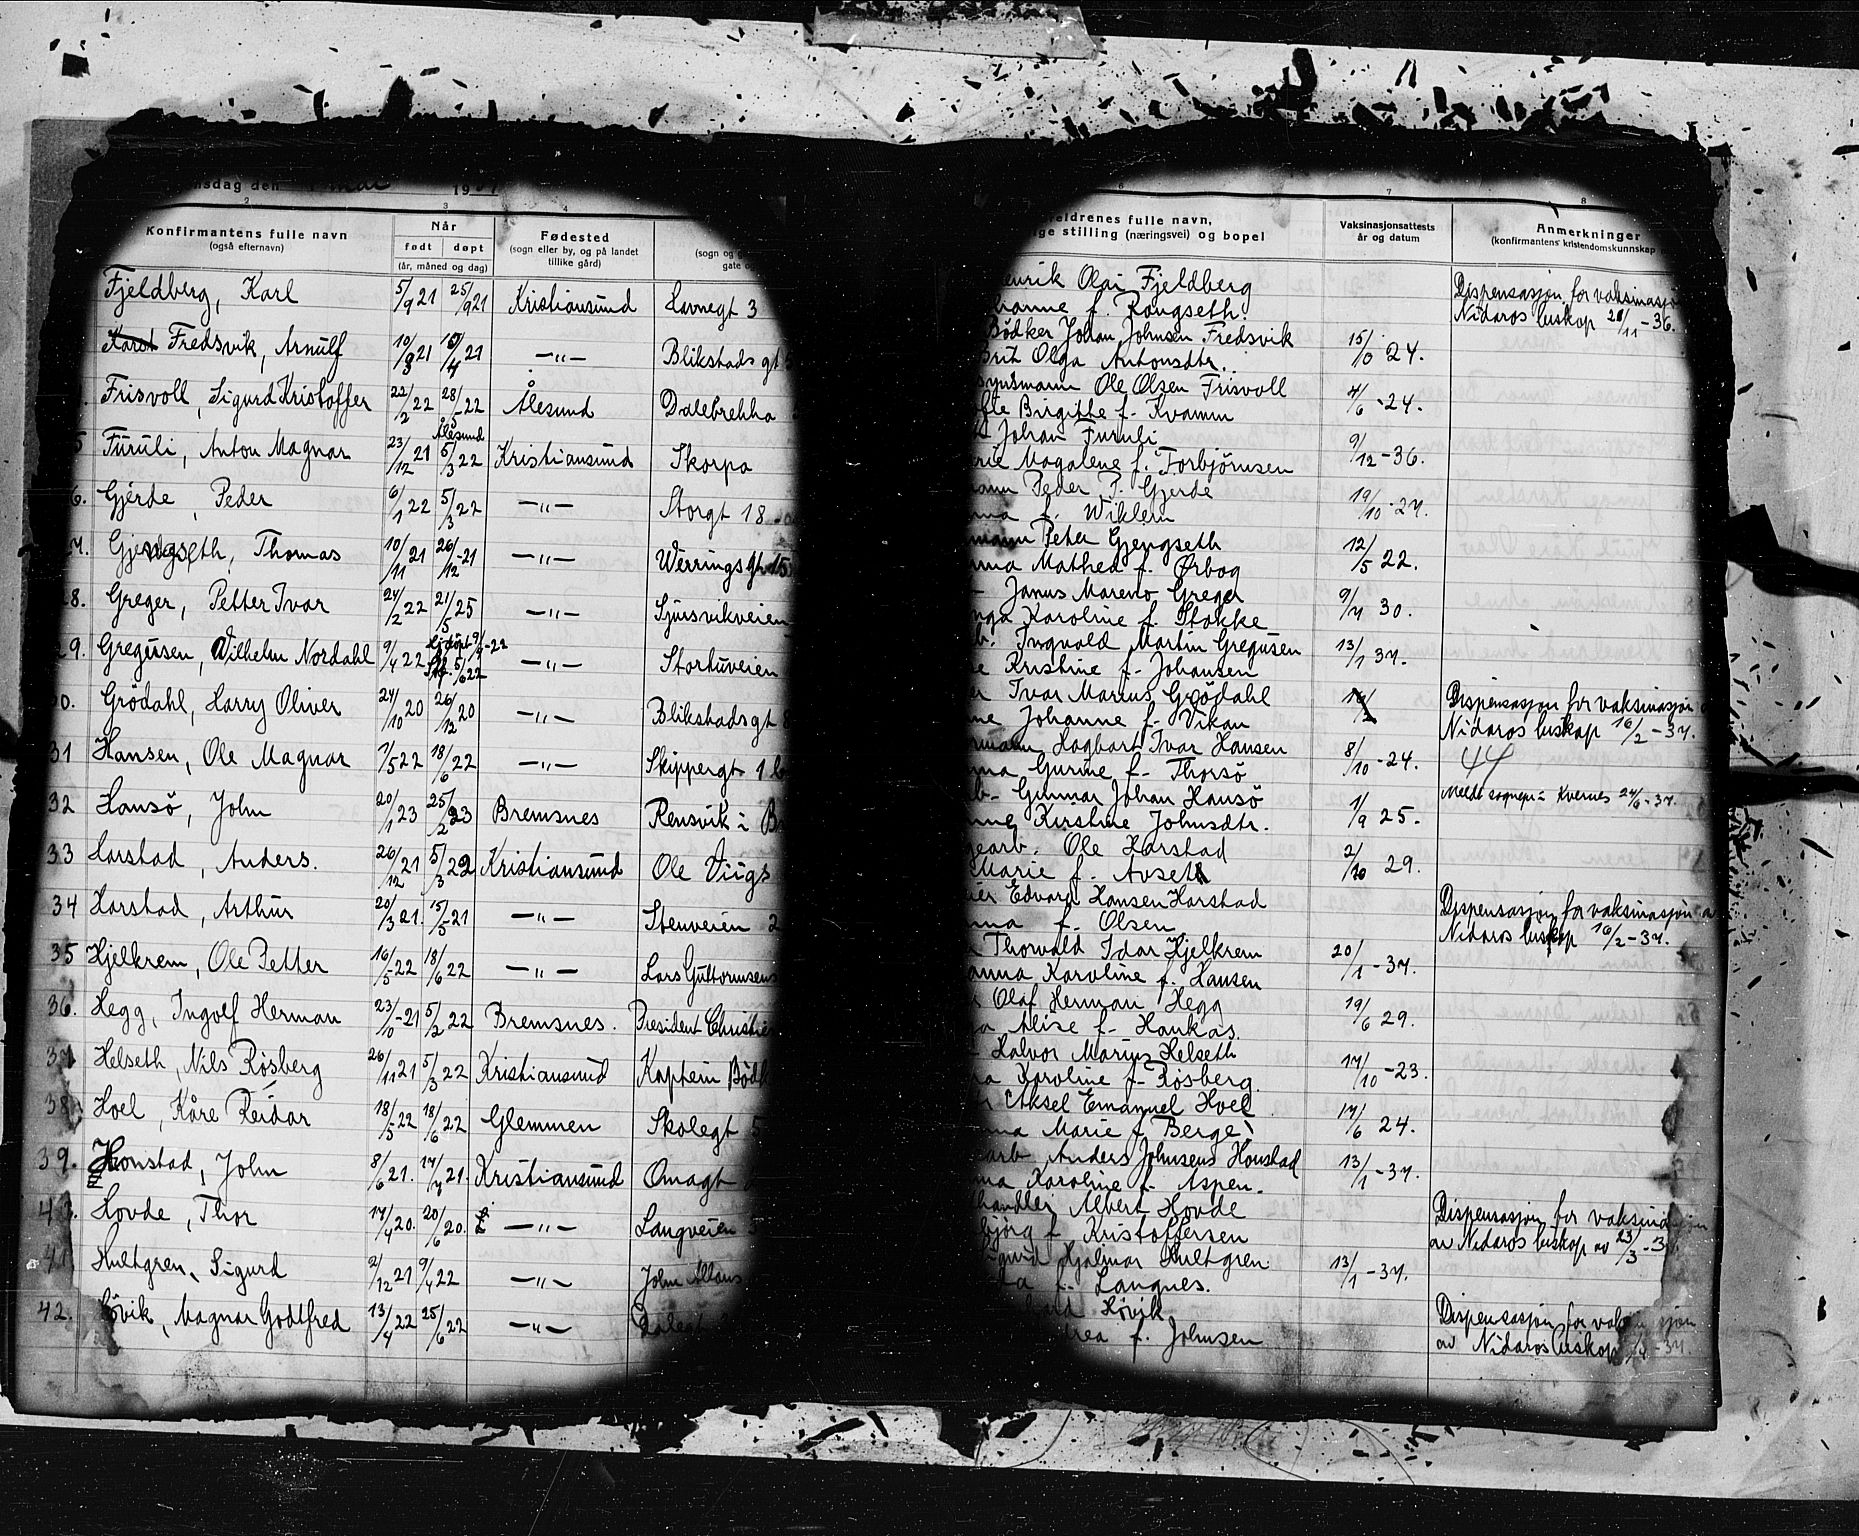 nsdag den mai 19
2 3 4 7 8
Konfirmantens fulle navn
(også efternavn)
Når
født døpt
(år, måned og dag)
Fødested
(sogn eller by, og på landet
tillike gård)
eldrenes fulle navn,
ge stilling (næringsvei) og bopel
Vaksinasjonsattests
år og datum
Anmerkninger
(konfirmantens kristendomskunnskap
Fjeldberg, Karl 5/9 21 25/9 21 Kristiansund Havnegt 3
enrik Olai Fjeldberg
f. Rongseth.
Dispensasjon for vaksinasjon
Nidaros biskop 28/11-36.
Fredsvik, Arnulf 10/3 21 10/4 21 —"— Blikstadsgt
Bødker Johan Johnsen Fredsvik
Brit Olga Antonsdtr. 24.
Frisvoll, Sigurd Kristoffer 22/2 22 28/5-22 Ålesund Dalebrekka
Ålesund
synsmann Ole Olsen Frisvoll
Birgitte f. Kvamm 4/6-24.
5 Furuli, Anton Magnar 23/12 21 5/3 22 Kristiansund Skorpa
Johan Furuli
Magdalene f. Torbjørnsen 9/12-36.
6. Gjerde, Peder 6/1 22 5/3 22 —"— Storgt 18
Peder P. Gjerde
f. Wiklem 19/10-27.
7. Gjengseth, Thomas 10/11 21 26/12-21 —"— Werringsgt 15
mann Peter Gjengseth
Mathea f. Ørbog 12/5 22.
28. Greger, Petter Ivar 24/2 22 21/5 25 —"— Sjursvikveien
Janus Mareno Greger
Karoline f. Stokke 9/7 30.
29. Gregusen, Vilhelm Nordahl 9/4 22 —"— Stortuveien
Ingvald Martin Gregusen
Kristine f. Johansen 13/1 37.
30. Grødahl, Harry Oliver 24/10 20 26/12 20 —"— Blikstadsgt
Ivar Marius Grødahl
Johanne f. Vikan
Dispensasjon for vaksinasjon
Nidaros biskop 16/2-37.
31 Hansen, Ole Magnar 1/5 22 18/6 22 —"— Skippergt 1
mann Hagbart Ivar Hansen
Gurine f. Thorsø 8/10-24. 44
32 Hansø, John 20/1 23 25/2 23 Bremsnes Rensvik i
Gunnar Johan Hansø
Kirstine Johnsdtr. 1/9 25.
Meldt sognepr i Kvernes 24/6-37.
33 Harstad, Anders. 26/12 21 5/3 22 Kristiansund Ole Vigs
arb. Ole Harstad
Marie f. Avset 2/10 29.
34 Harstad, Arthur 20/3 21. 15/5 21 —"— Stenveien 2
Edvard Hansen Harstad
f. Olsen
Dispensasjon for vaksinasjon a
Nidaros biskop 16/2-37.
35 Hjelkrem, Ole Petter 16/5 22 18/6 22 —"— Lars Guttormsens
Thorvald Idar Hjelkrem
Karoline f. Hansen 20/1-37.
36. Hegg, Ingolf Herman 23/10-21 5/2 22 Bremsnes. President Christies
Olaf Herman Hegg
Alise f. Haukås. 19/6 29.
37 Helseth, Nils Røsberg 26/11 21 5/3 22 Kristiansund Kaptein Bødt
Halvor Marius Helseth
Karoline f. Røsberg. 17/10-23.
38. Hoel, Kåre Reidar 18/5-22 18/6 22 Glemmen Skolegt 5
Aksel Emanuel Hoel
Marie f. Berge 17/6 24.
39. Honstad, John 8/6 21. 17/7 21. Kristiansund Omagt
arb. Anders Johnsens Honstad
Karoline f. Aspen. 13/1-37.
Hovde, Thor 17/4 20. 20/6 20. —"— Langveien
handler Albert Hovde
f. Kristoffersen
Dispensasjon for vaksinasjon
av Nidaros biskop av 23/3-37.
41 Hultgren, Sigurd 2/12 21 9/4 22 —"— John
Hjalmar Hultgren
f. Langnes. 13/1-37.
42. Høvik, Magnar Godtfred 13/4 22 25/6 22 —"— Dalegt
Høvik
f. Johnsen
Dispensasjon for
av Nidaros biskop -37.